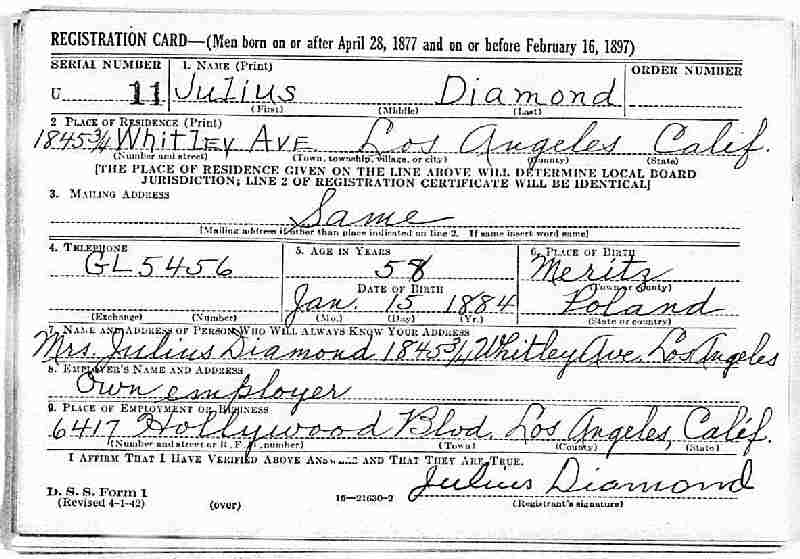 REGISTRATION CARD—(Men born on or after April 28, 1877 and on or before February 16, 1897)
SERIAL NUMBER 1. NAME (Print) ORDER NUMBER
U 11 Julius Diamond
(First) (Middle) (Last)
2 PLACE OF RESIDENCE (Print)
1845 3/4 Whitley Ave Los Angeles Calif.
(Number and street) (Town, township, village, or city) (County) (State)
[THE PLACE OF RESIDENCE GIVEN ON THE LINE ABOVE WILL DETERMINE LOCAL BOARD
JURISDICTION; LINE 2 OF REGISTRATION CERTIFICATE WILL BE IDENTICAL]
3. MAILING ADDRESS
Same
[Mailing address if other than place indicated on line 2. If same insert word same]
4. TELEPHONE 5. AGE IN YEARS 6. PLACE OF BIRTH
GL 5456 58 Meritz
DATE OF BIRTH (Town or county)
Jan. 15 1884 Poland
(Exchange) (Number) (Mo.) (Day) (Yr.) (State or country)
7. NAME AND ADDRESS OF PERSON WHO WILL ALWAYS KNOW YOUR ADDRESS
Mrs. Julius Diamond 1845 3/4 Whitley Ave. Los Angeles
8. EMPLOYER'S NAME AND ADDRESS
Own employer
9. PLACE OF EMPLOYMENT OR BUSINESS
6417 Hollywood Blvd. Los Angeles, Calif.
(Number and street or R. F. D. number) (Town) (County) (State)
I AFFIRM THAT I HAVE VERIFIED ABOVE ANSWERS AND THAT THEY ARE TRUE.
Julius Diamond
D. S. S. Form 1
(Revised 4-1-42) (over) 16—21630-2 (Registrant's signature)